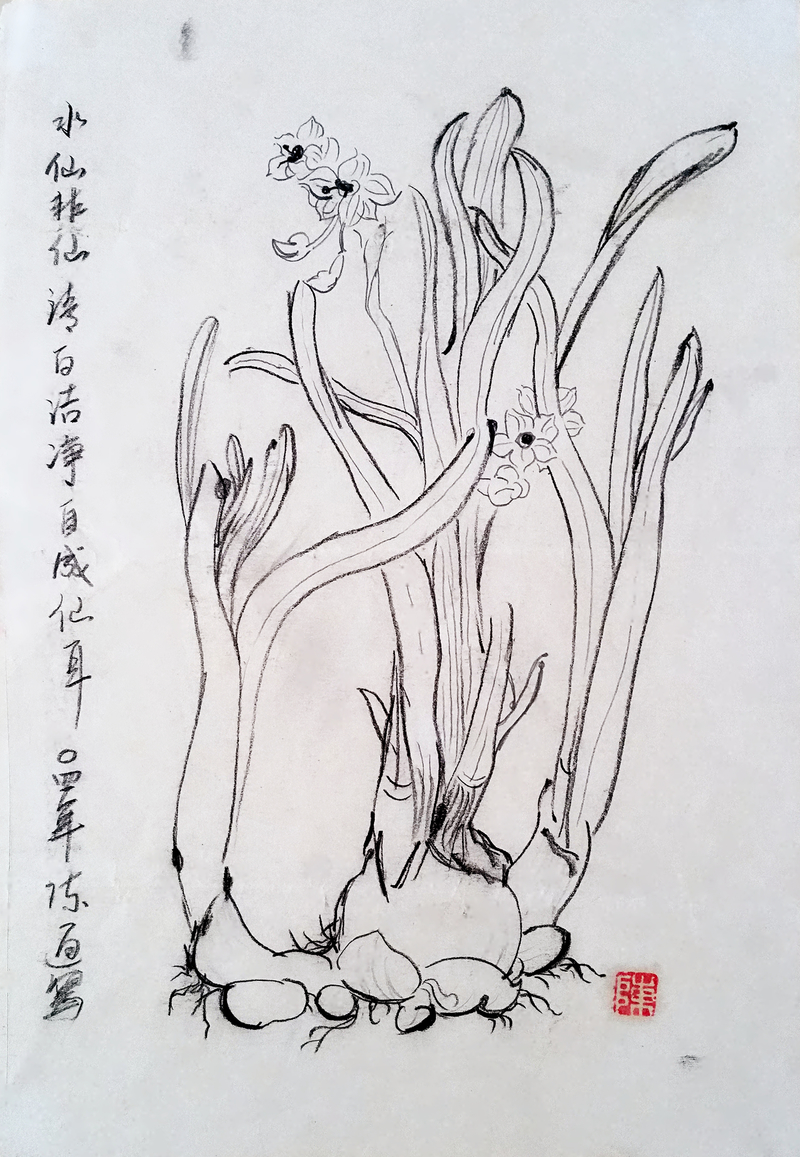 水仙非仙清白洁净自成仙耳 〇四年 陈写
陳